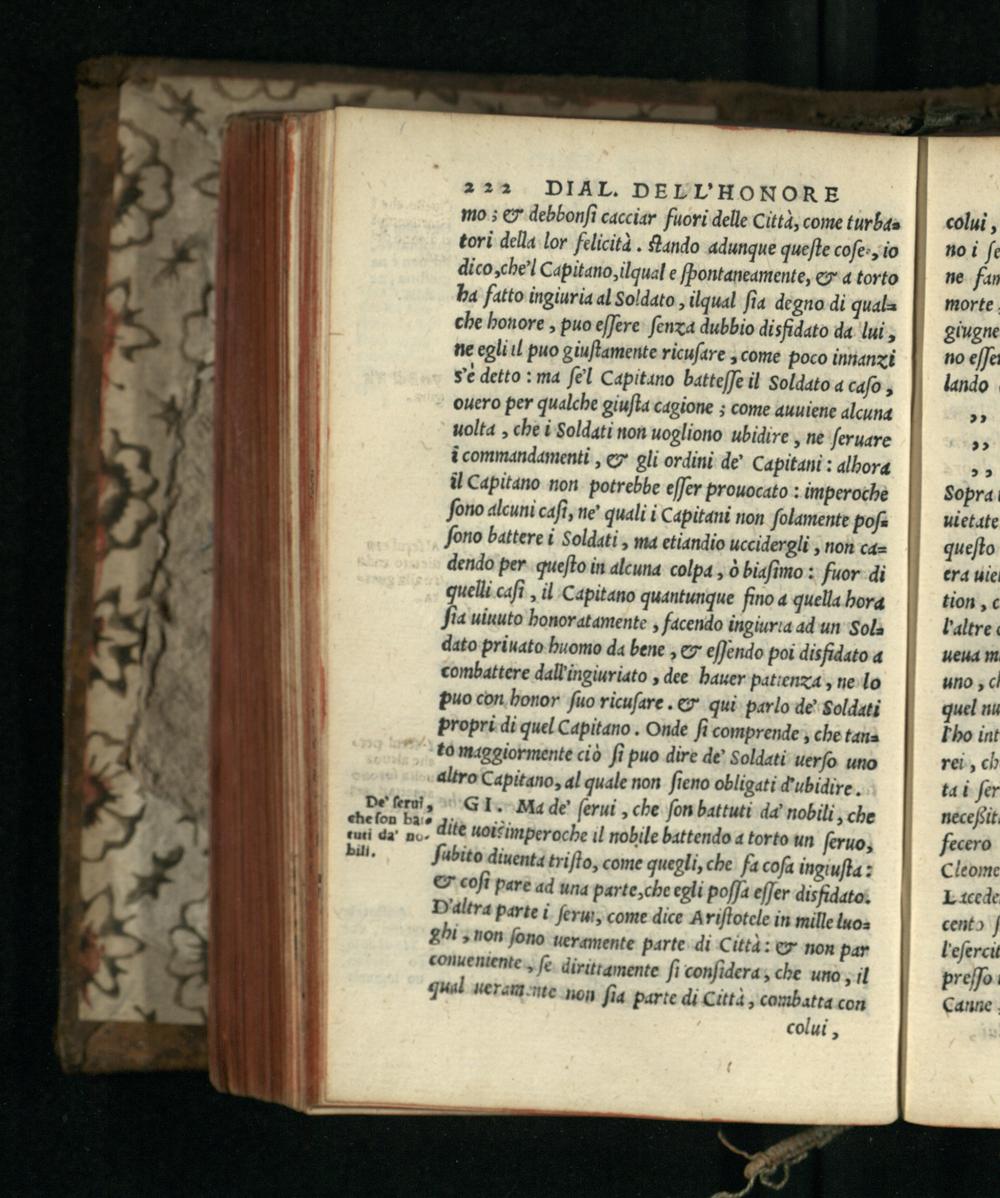 222 DIAL. DELL'HONORE
mo; & debbonſi cacciar fuori delle Città, come turba=
tori della lor felicità. ſtando adunque queſte coſe, io
dico, che'l Capitano, ilqual e ſpontaneamente, & a torto
ha fatto ingiuria al Soldato, ilqual ſia degno di qual=
che honore, puo eſſere ſenza dubbio disfidato da lui,
ne egli il puo giuſtamente ricuſare, come poco innanzi
s'è detto: ma ſe'l Capitano batteſſe il Soldato a caſo,
ouero per qualche giuſta cagione; come auuiene alcuna
uolta, che i Soldati non uogliono ubidire, ne ſeruare
i commandamenti, & gli ordini de' Capitani: alhora
il Capitano non potrebbe eſſer prouocato: imperoche
ſono alcuni caſi, ne' quali i Capitani non ſolamente poſ=
ſono battere i Soldati, ma etiandio uccidergli, non ca=
dendo per queſto in alcuna colpa, ò biaſimo: fuor di
quelli caſi, il Capitano quantunque fino a quella hora
ſia uiuuto honoratamente, facendo ingiuria ad un Sol=
dato priuato huomo da bene, & eſſendo poi disfidato a
combattere dall'ingiuriato, dee hauer patienza, ne lo
puo con honor ſuo ricuſare. & qui parlo de' Soldati
propri di quel Capitano. Onde ſi comprende, che tan=
to maggiormente ciò ſi puo dire de' Soldati uerſo uno
altro Capitano, al quale non ſieno obligati d'ubidire.
De' ſerui,
che ſon bat=
tuti da' no=
bili.
GI. Ma de' ſerui, che ſon battuti da' nobili, che
dite uoi? imperoche il nobile battendo a torto un ſeruo,
ſubito diuenta triſto, come quegli, che fa coſa ingiuſta:
& coſi pare ad una parte, che egli poſſa eſſer disfidato.
D'altra parte i ſerui, come dice Ariſtotele in mille luo=
ghi, non ſono ueramente parte di Città: & non par
conueniente, ſe dirittamente ſi conſidera, che uno, il
qual ueramente non ſia parte di Città, combatta con
colui,
colui,
no i ſe
ne fan
morte,
giugne
no eſſer
lando
,,
,,
,,
Sopra
uietate
queſto
era uiet
tion, c
l'altre
ueua m
uno, ch
quel nu
l'ho int
rei, ch
ta i ſer
neceßit
fecero
Cleome
Lacede
cento ſ
l'eſercit
preſſo
Canne,